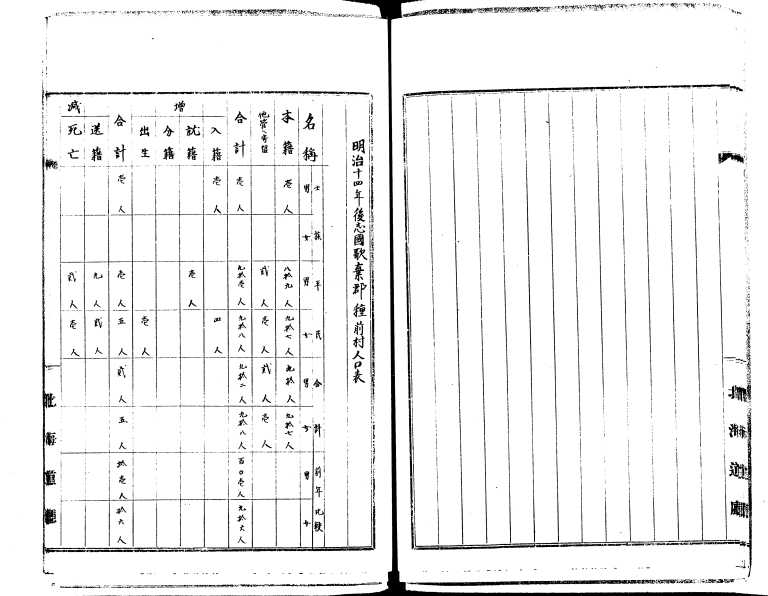 明治十四年後志國歌棄郡種前村人口表
名稱 士族 男 女 平民 男 女 合計 男 女 前年比較 男 女
本籍 壱人 八拾九人 九拾七人 九拾人 九拾七人
他ヨリ寄留 貳人 壱人 貳人 壱人
合計 壱人 九拾壱人 九拾八人 九拾二人 九拾八人 百〇壱人 九拾六人
増
入籍 壱人 四人
就籍 壱人
分籍
出生 壱人
合計 壱人 壱人 五人 貳人 五人 拾壱人 拾六人
減
送籍 九人 貳人
死亡 貳人 壱人
北海道廳